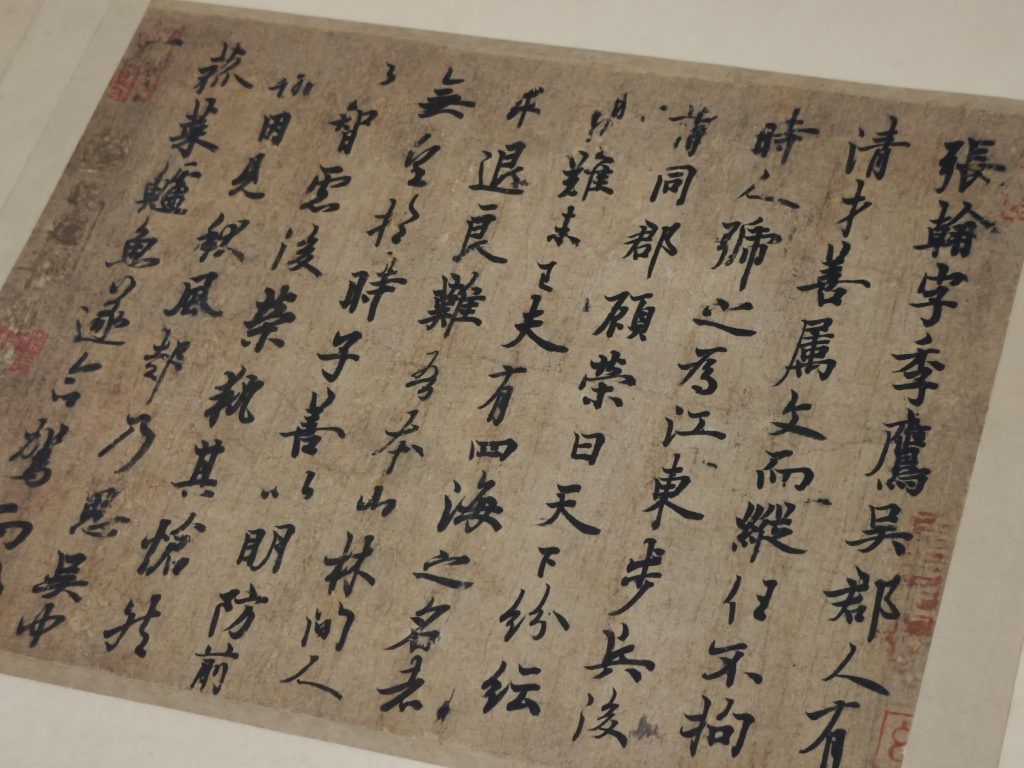 張翰字季鷹吳郡人有
清才善属文而縱任不拘
時人号虎之為江東步兵後
同郡顧榮曰天下紛纭
難未已夫有四海之名者
求退良難吾本山林間人
無望於時子善以明防前
智慮後榮執其愴然
因見秋風起乃思吳中
菰菜鱸魚遂命駕而